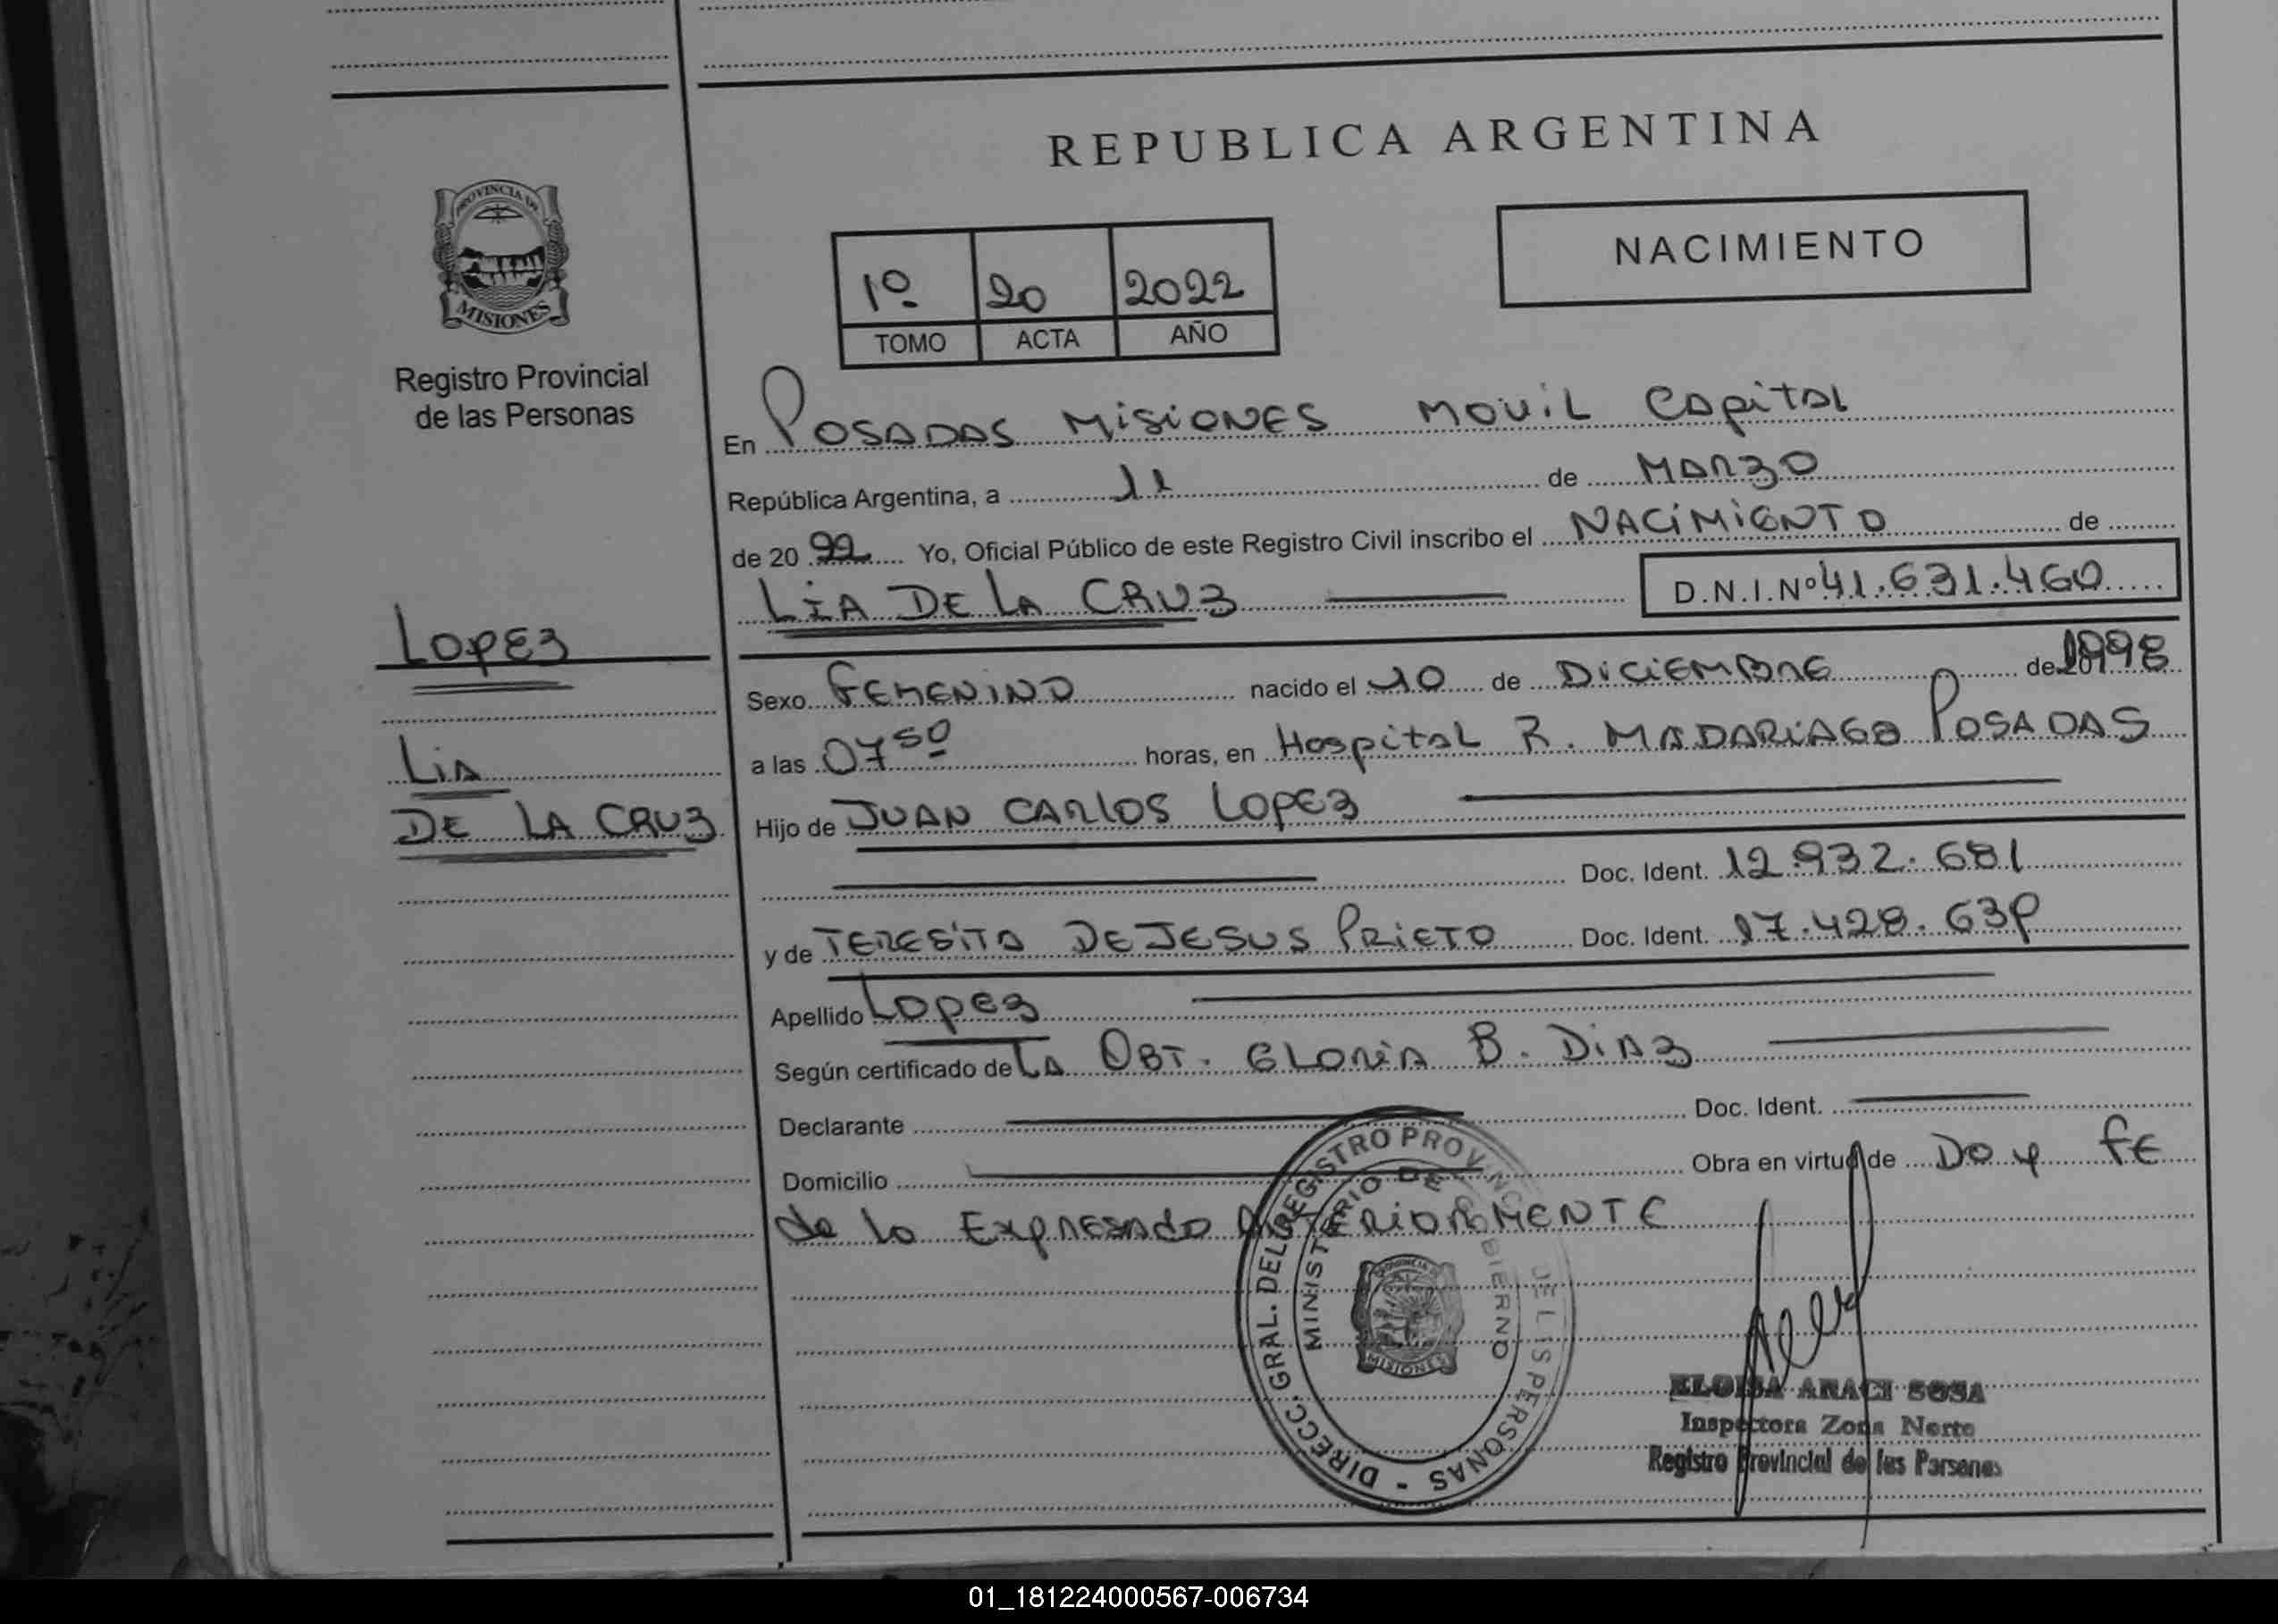 REPUBLICA ARGENTINA
PROVINCIA DE
MISIONES
Registro Provincial
de las Personas
NACIMIENTO
1º 20 2022
TOMO ACTA AÑO
En POSADAS MISIONES MOVIL CAPITAL
República Argentina, a 11 de MARZO
de 20 22 Yo, Oficial Público de este Registro Civil inscribo el NACIMIENTO de
LIA DE LA CRUZ D.N.I.Nº 41.631.460
LOPEZ
LIA
DE LA CRUZ
Sexo FEMENINO nacido el 10 de DICIEMBRE de 1998
a las 07 50 horas, en Hospital R. MADARIAGA POSADAS
Hijo de JUAN CARLOS LOPEZ
Doc. Ident. 12.932.681
y de TERESITA DE JESUS PRIETO Doc. Ident. 17.428.63
Apellido LOPEZ
Según certificado de LA OBT. GLORIA B. DIAZ
Declarante Doc. Ident.
Domicilio Obra en virtud de DOY FE
de lo EXPRESADO ANTERIORMENTE
DIRECC. GRAL. DEL REGISTRO PROVINCIAL DE LAS PERSONAS -
MINISTERIO DE GOBIERNO
MISIONES
ELOISA ARACI SOSA
Inspectora Zona Norte
Registro Provincial de las Personas
01_181224000567-006734